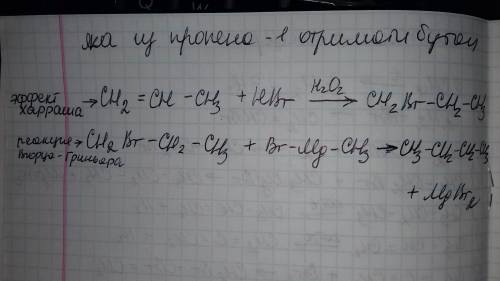 яка из пропена-1 отримати бутан
эффект харраша → CH₂ = CH - CH₃ + HBr H₂O₂ → CH₂Br - CH₂ - CH₃
реакция Вюрца-Гриньара → CH₂Br - CH₂ - CH₃ + Br - Mg - CH₃ → CH₃ - CH₂ - CH₂ - CH₃
+ MgBr₂